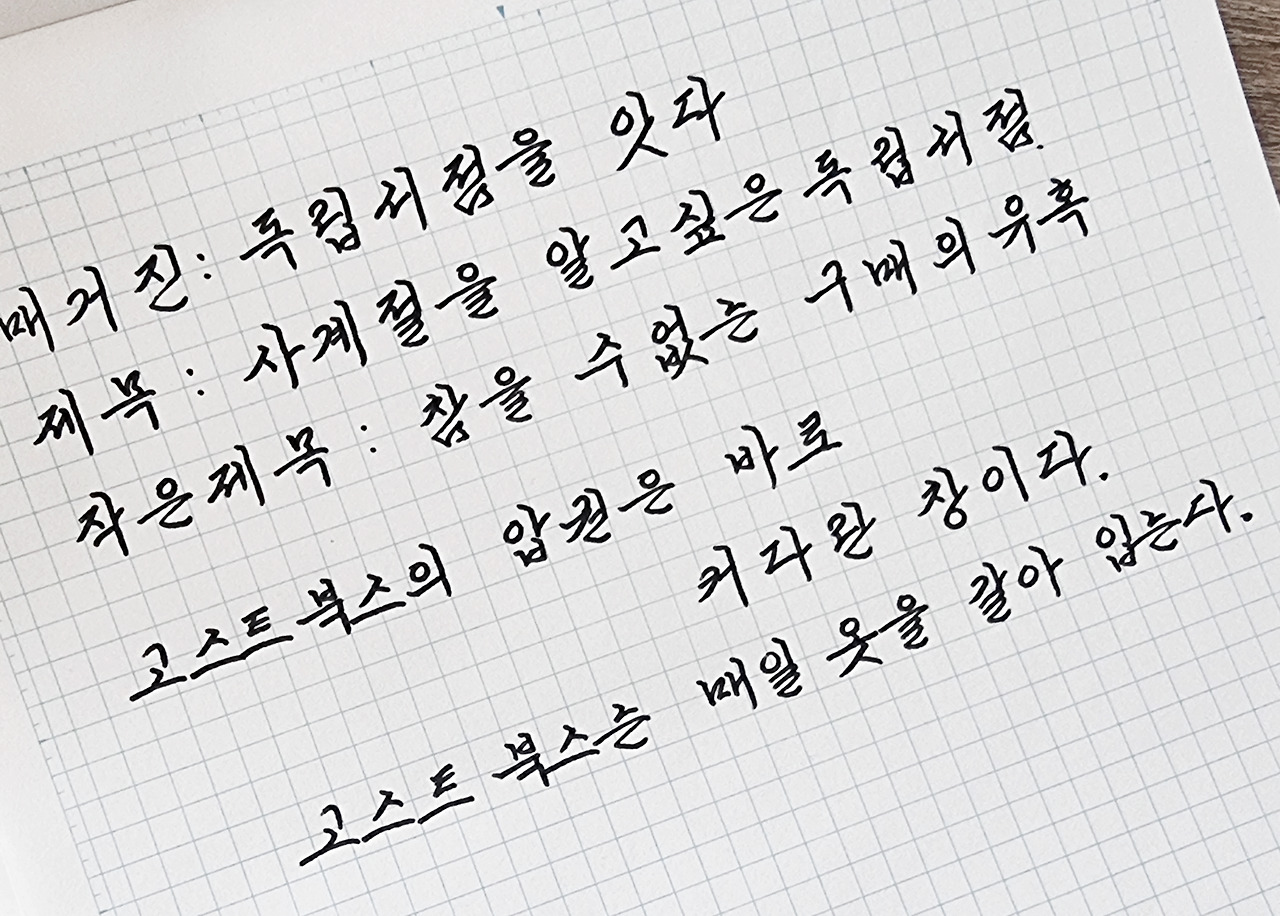 매거진: 독립서점을 잇다
제목: 사계절을 알고싶은 독립서점.
작은제목: 참을 수없는 구매의 유혹
고스트북스의 압권은 바로
커다란 창이다.
고스트 북스는 매일 옷을 갈아 입는다.